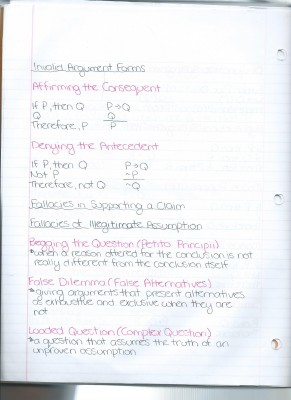 Invalid Argument Forms
Affirming the Consequent
If P, then Q P→Q
Q Q
Therefore, P P
Denying the Antecedent
If P, then Q P→Q
Not P ~P
Therefore, not Q ~Q
Fallacies in Supporting a Claim
Fallacies of Illegitimate Assumption
Begging the Question (Petito Principii)
*when a reason offered for the conclusion is not
really different from the conclusion itself
False Dilemma (False Alternatives)
*giving arguments that present alternatives
as exhaustive and exclusive when they are
not
Loaded Question (Complex Question)
*a question that assumes the truth of an
unproven assumption